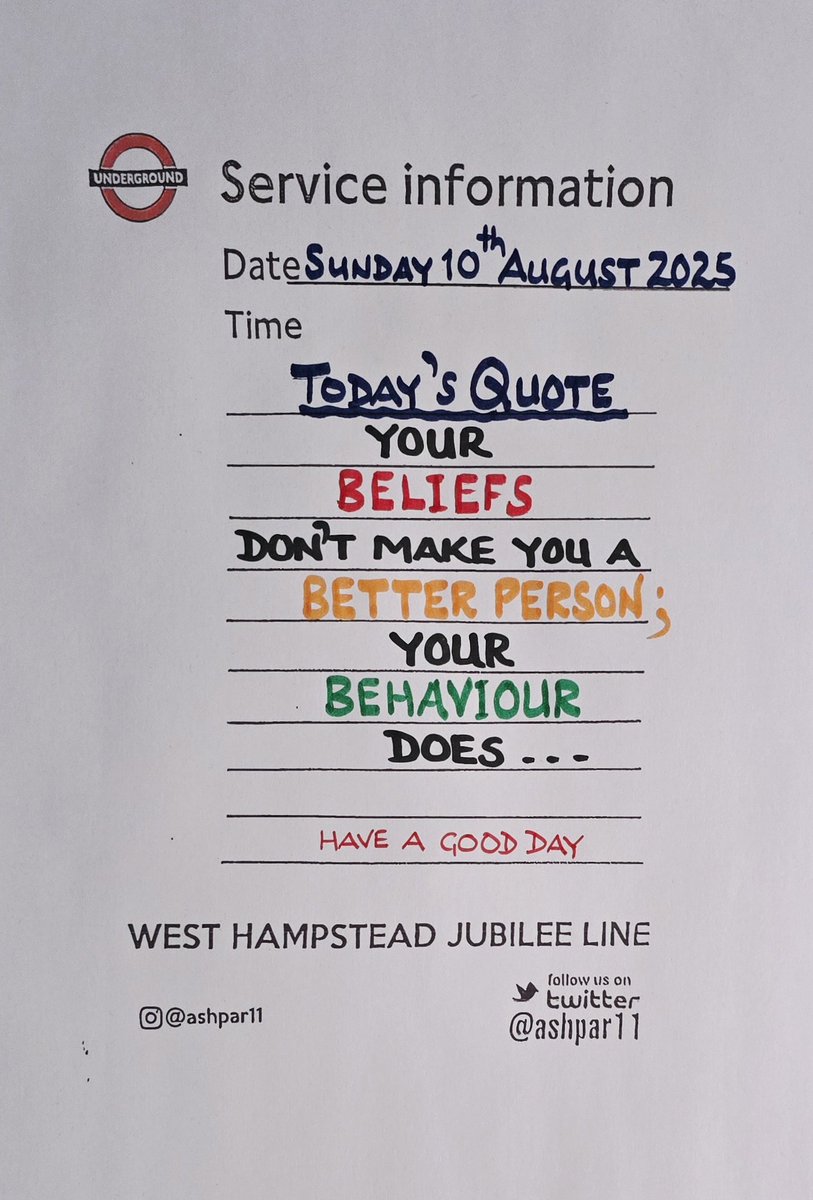 UNDERGROUND
Service information
Date SUNDAY 10th AUGUST 2025
Time
TODAY'S QUOTE
YOUR
BELIEFS
DON'T MAKE YOU A
BETTER PERSON;
YOUR
BEHAVIOUR
DOES...
HAVE A GOOD DAY
WEST HAMPSTEAD JUBILEE LINE
follow us on
twitter
@ashpar11
@ashpar11